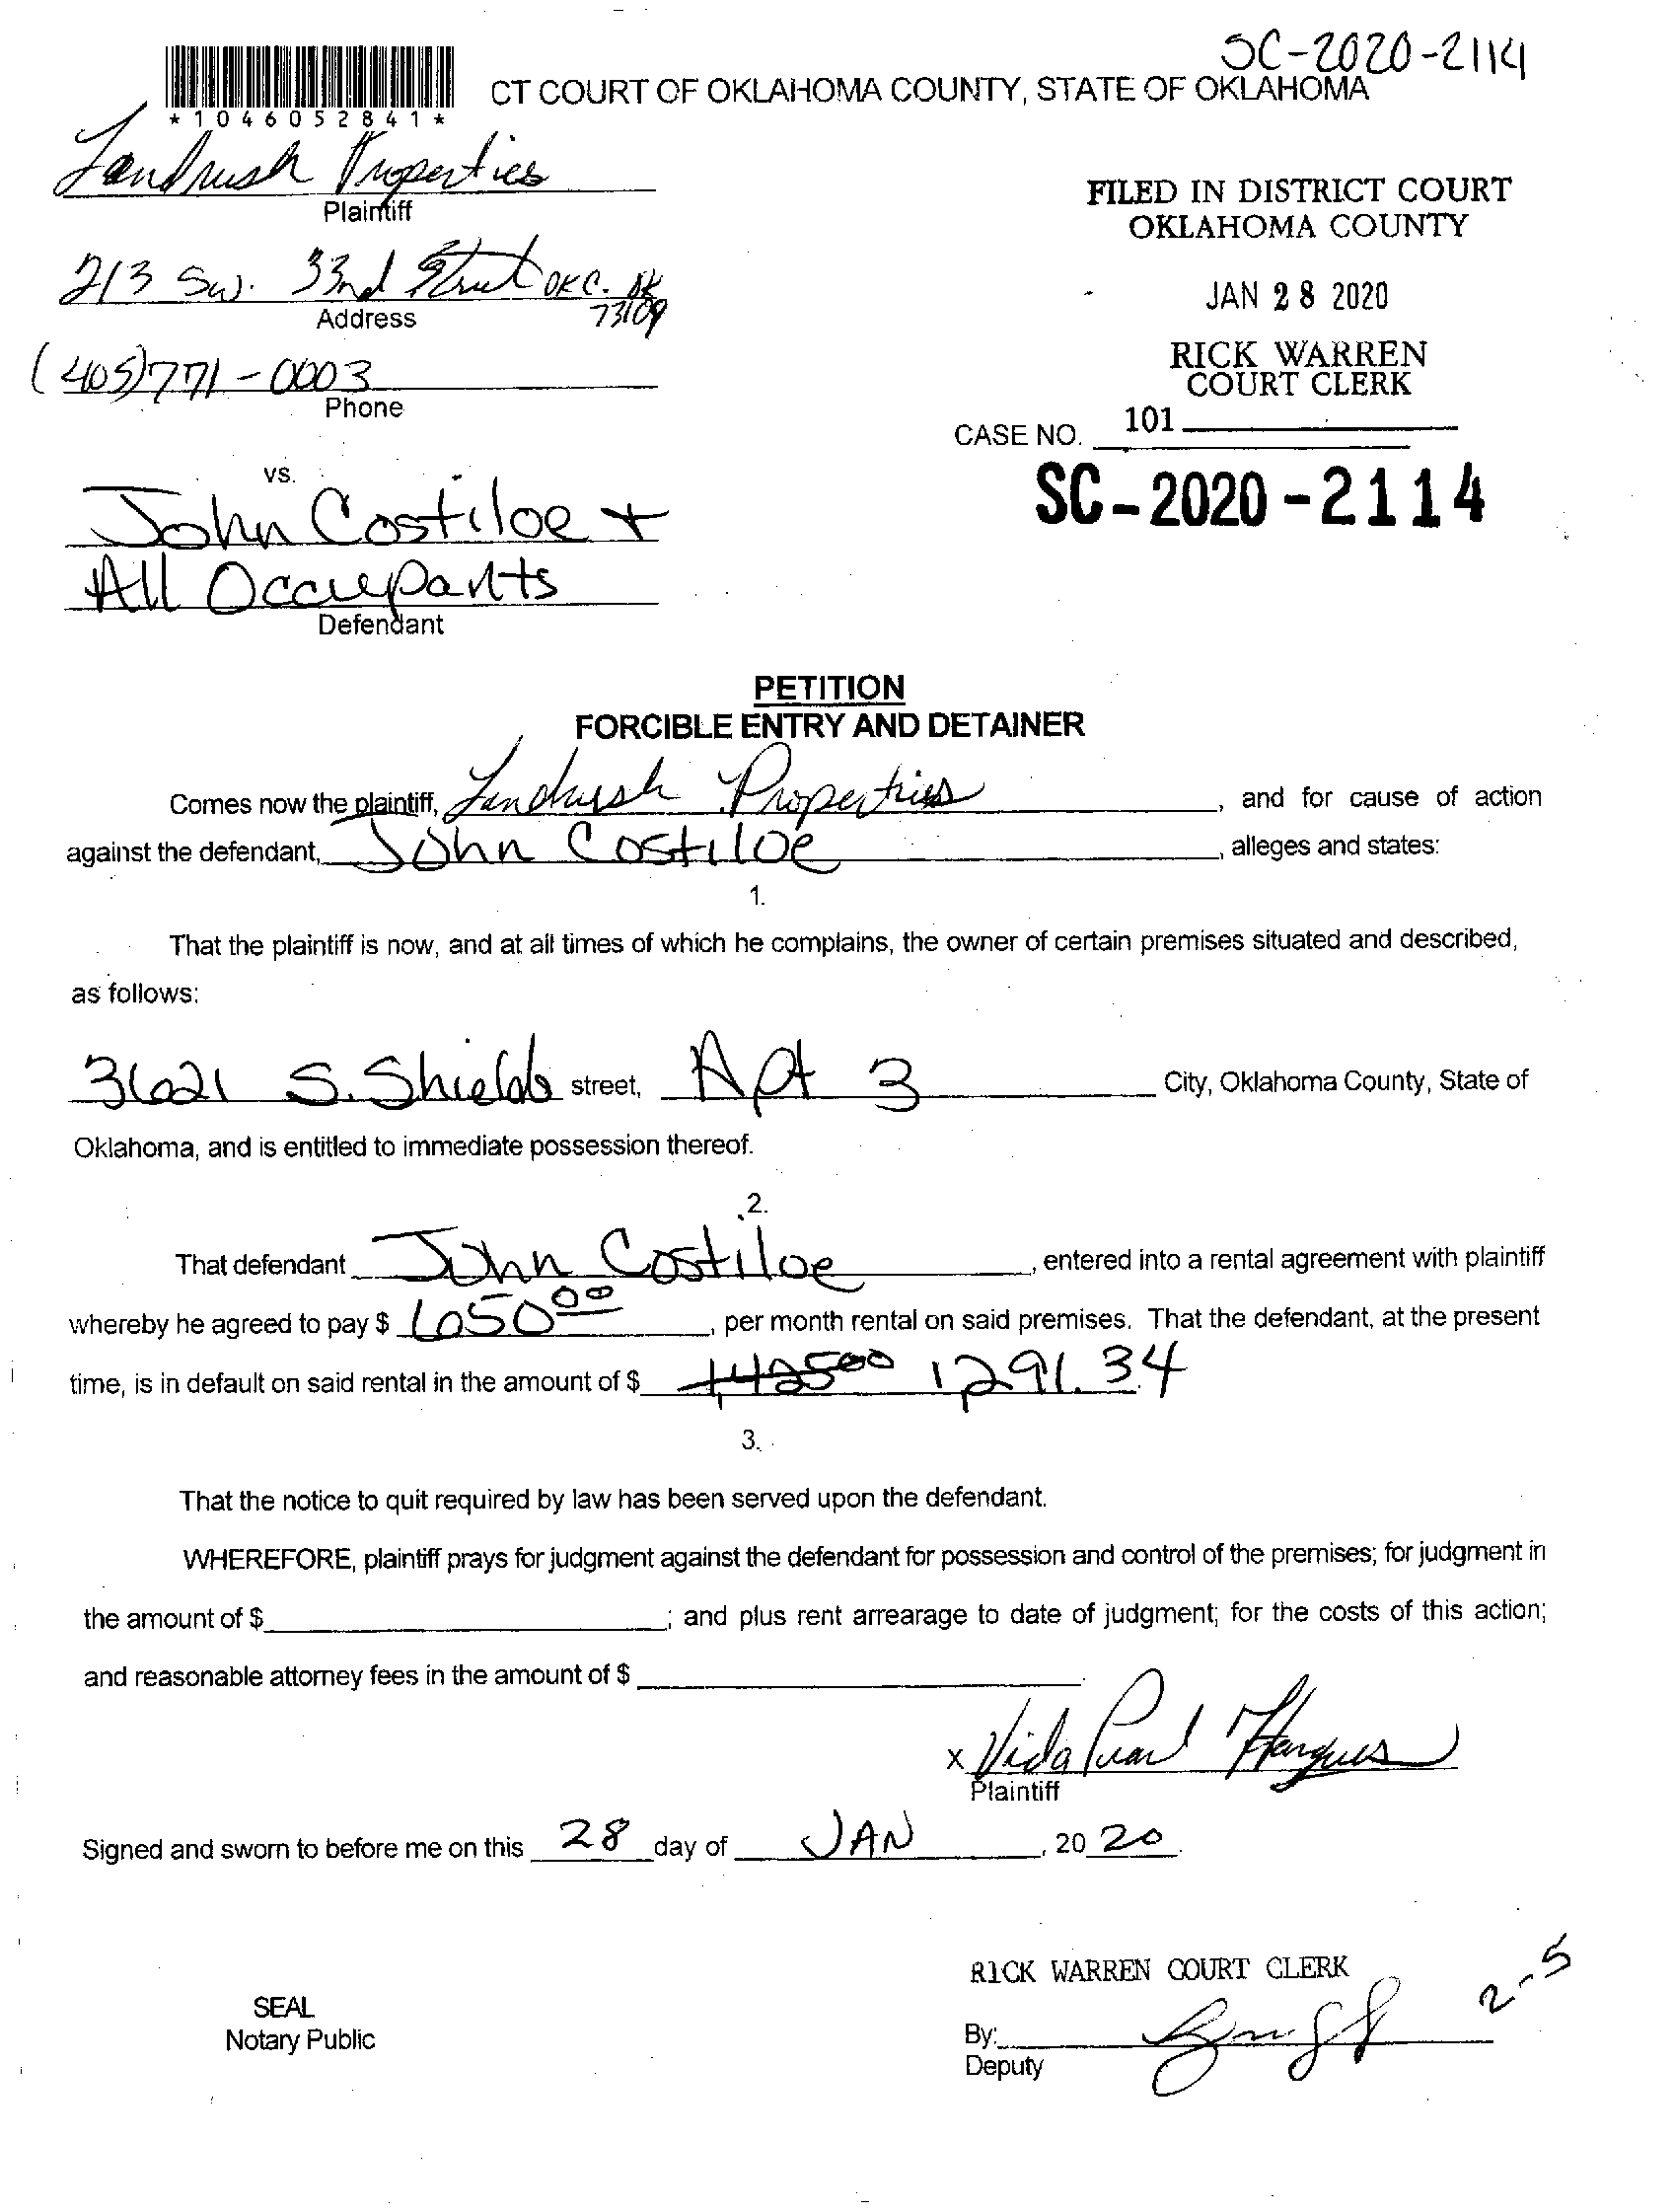 SC-2020-2114
CT COURT OF OKLAHOMA COUNTY, STATE OF OKLAHOMA
*1046052841*
Landrush Properties
Plaintiff
FILED IN DISTRICT COURT
OKLAHOMA COUNTY
213 SW. 33rd Street OKC. OK
73109
Address
JAN 28 2020
(405)771-0003
Phone
RICK WARREN
COURT CLERK
101
CASE NO.
SC-2020-2114
vs.
John Costiloe +
All Occupants
Defendant
PETITION
FORCIBLE ENTRY AND DETAINER
Comes now the plaintiff, Landrush Properties, and for cause of action
against the defendant, John Costiloe, alleges and states:
1.
That the plaintiff is now, and at all times of which he complains, the owner of certain premises situated and described,
as follows:
3621 S. Shields street, Apt 3 City, Oklahoma County, State of
Oklahoma, and is entitled to immediate possession thereof.
2.
That defendant John Costiloe, entered into a rental agreement with plaintiff
whereby he agreed to pay $ 650 00, per month rental on said premises. That the defendant, at the present
time, is in default on said rental in the amount of $ 1,425 00 1291.34
3.
That the notice to quit required by law has been served upon the defendant.
WHEREFORE, plaintiff prays for judgment against the defendant for possession and control of the premises; for judgment in
the amount of $ ; and plus rent arrearage to date of judgment; for the costs of this action;
and reasonable attorney fees in the amount of $ .
x Vida Pearl
Plaintiff
Signed and sworn to before me on this 28 day of JAN, 20 20.
RICK WARREN COURT CLERK
2-5
SEAL
Notary Public
By:
Deputy